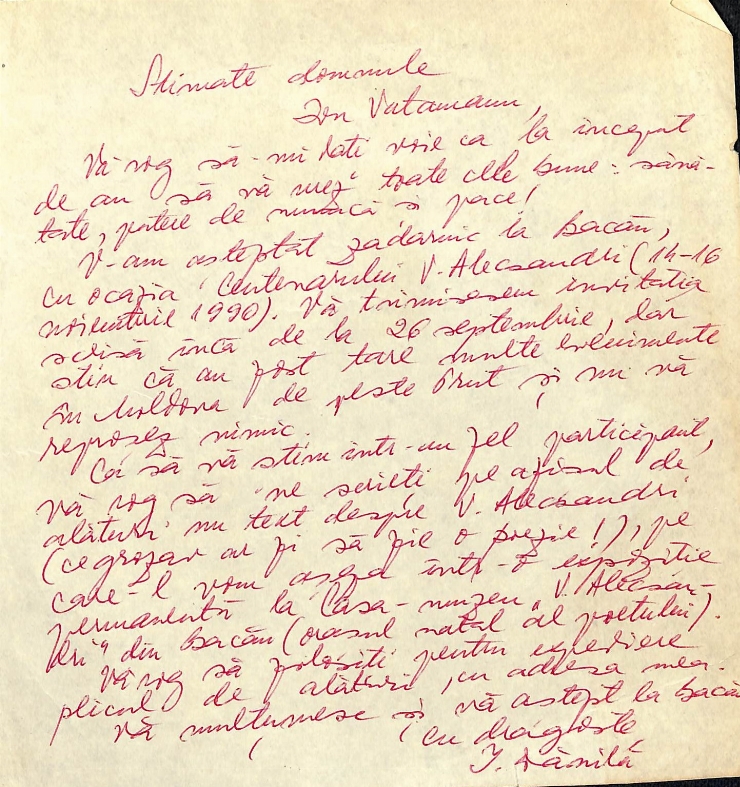 Stimate domnule
Ion Vatamanu,
Vă rog să-mi dați voie ca la început
de an să vă urez toate cele bune: sănă-
tate, putere de muncă și pace!
V-am așteptat zadarnic la Bacău,
cu ocazia Centenarului V. Alecsandri (14-16
noiembrie 1990). Vă trimisesem invitația
scrisă încă de la 26 septembrie, dar
știu că au fost tare multe evenimente
în Moldova de peste Prut și nu vă
reproșez nimic.
Ca să vă știm într-un fel participant,
vă rog să ne scrieți pe afișul de
alături un text despre V. Alecsandri
(ce grozav ar fi să fie o poezie!), pe
care-l vom așeza într-o expoziție
permanentă la Casa-muzeu "V. Alecsan-
dri" din Bacău (orașul natal al poetului).
Vă rog să folosiți pentru expediere
plicul de alături, cu adresa mea.
Vă mulțumesc și vă aștept la Bacău
cu dragoste,
I. Dănilă